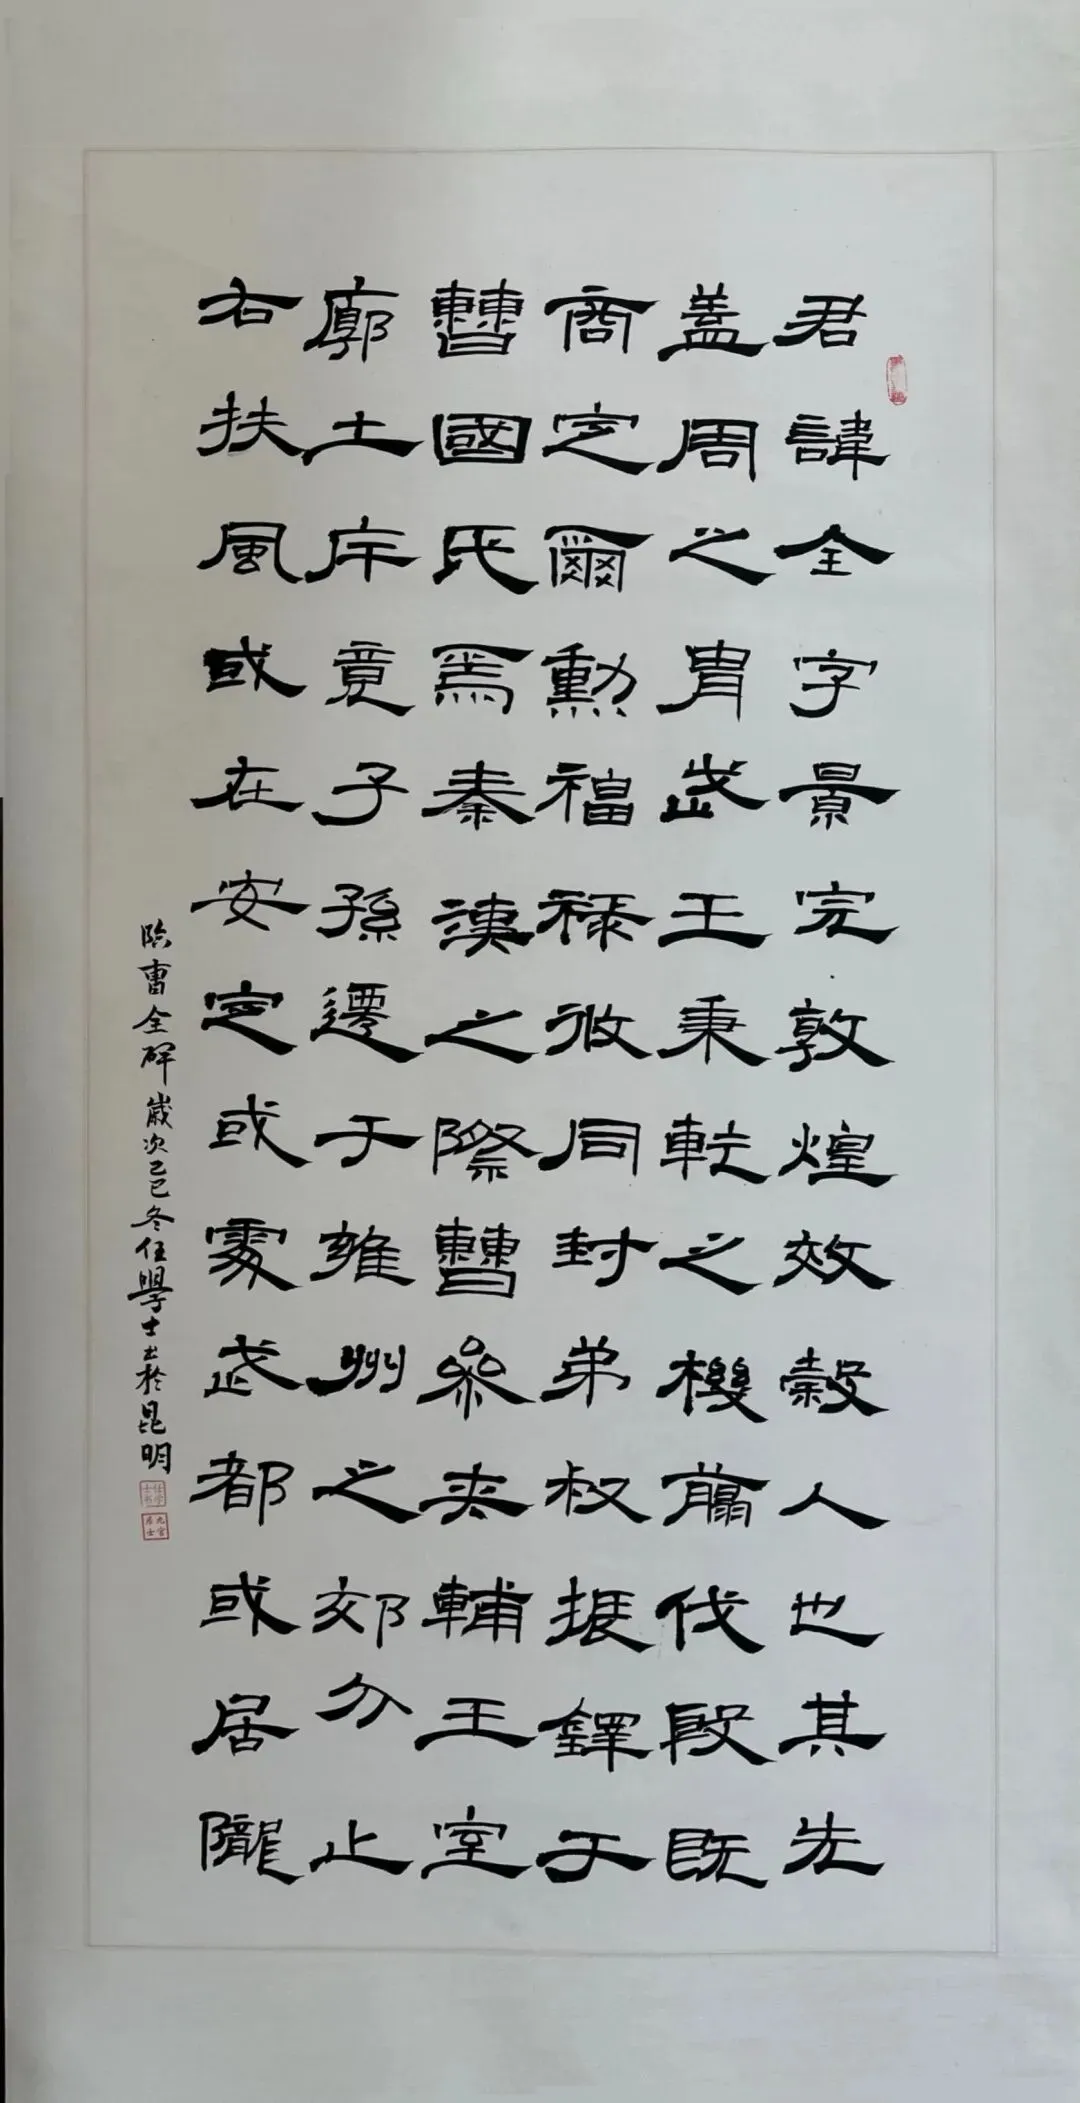 君諱全字景完敦煌效穀人也其先
蓋周之胄武王秉乾之機翦伐殷既
商定爾勳福祿攸同封弟叔振鐸于
曹國氏焉秦漢之際曹參夾輔王室
廓土斥竟子孫遷于雍州之郊分止
右扶風或在安定或處武都或居隴
臨曹全碑歲次己巳冬任學士书於昆明
任学士书
九宫居士